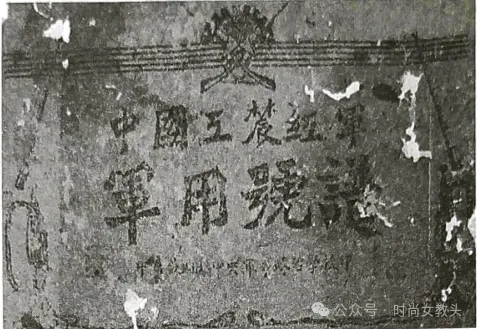 中國工農紅軍
軍用號譜
公众号 · 时尚女教头